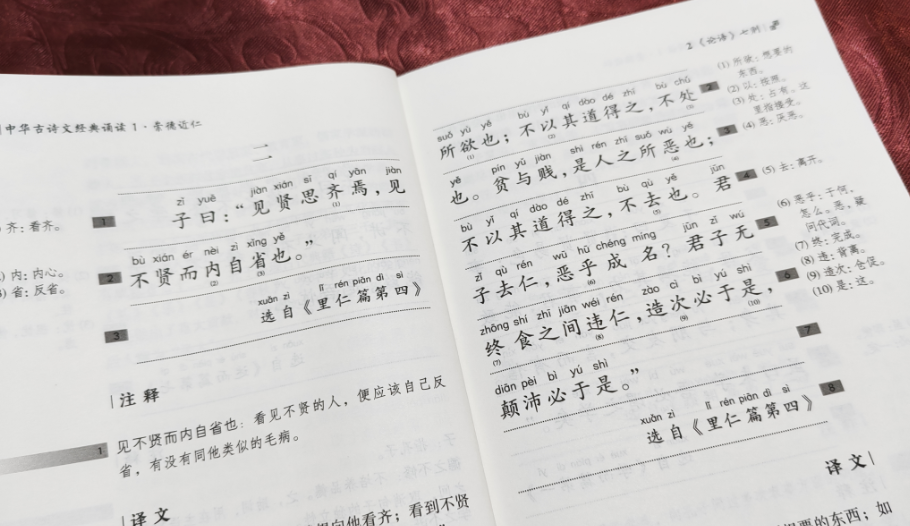 中华古诗文经典诵读 1·崇德迈仁
二
zǐ yuē jiàn xián sī qí yān jiàn
1 子曰：“见贤思齐焉，见
(1)
齐：看齐。
bù xián ér nèi zì xǐng yě
2 不贤而内自省也。”
(2) (3)
内：内心。
省：反省。
xuǎn zì lǐ rén piān dì sì
3 选自《里仁篇第四》
注释
1 见不贤而内自省也：看见不贤的人，便应该自己反
省，有没有同他类似的毛病。
译文
向他看齐；看到不贤
2《论语》七则
suǒ yù yě bù yǐ qí dào dé zhī bù chǔ
所欲也；不以其道得之，不处 2
(1) (2) (3)
yě pín yǔ jiàn shì rén zhī suǒ wù yě
也。贫与贱，是人之所恶也； 3
(4)
bù yǐ qí dào dé zhī bù qù yě jūn
不以其道得之，不去也。君 4
(5)
zǐ qù rén wū hū chéng míng jūn zǐ wú
子去仁，恶乎成名？君子无 5
(6)
zhōng shí zhī jiān wéi rén zào cì bì yú shì
终食之间违仁，造次必于是， 6
(7) (8) (9) (10)
diān pèi bì yú shì
颠沛必于是。” 7
xuǎn zì lǐ rén piān dì sì
选自《里仁篇第四》 8
译文
要的东西；如
(1) 所欲：想要的
东西。
(2) 以：按照。
(3) 处：占有。这
里指接受。
(4) 恶：厌恶。
(5) 去：离开。
(6) 恶乎：于何，
怎么。恶，疑
问代词。
(7) 终：完成。
(8) 违：背离。
(9) 造次：仓促。
(10) 是：这。